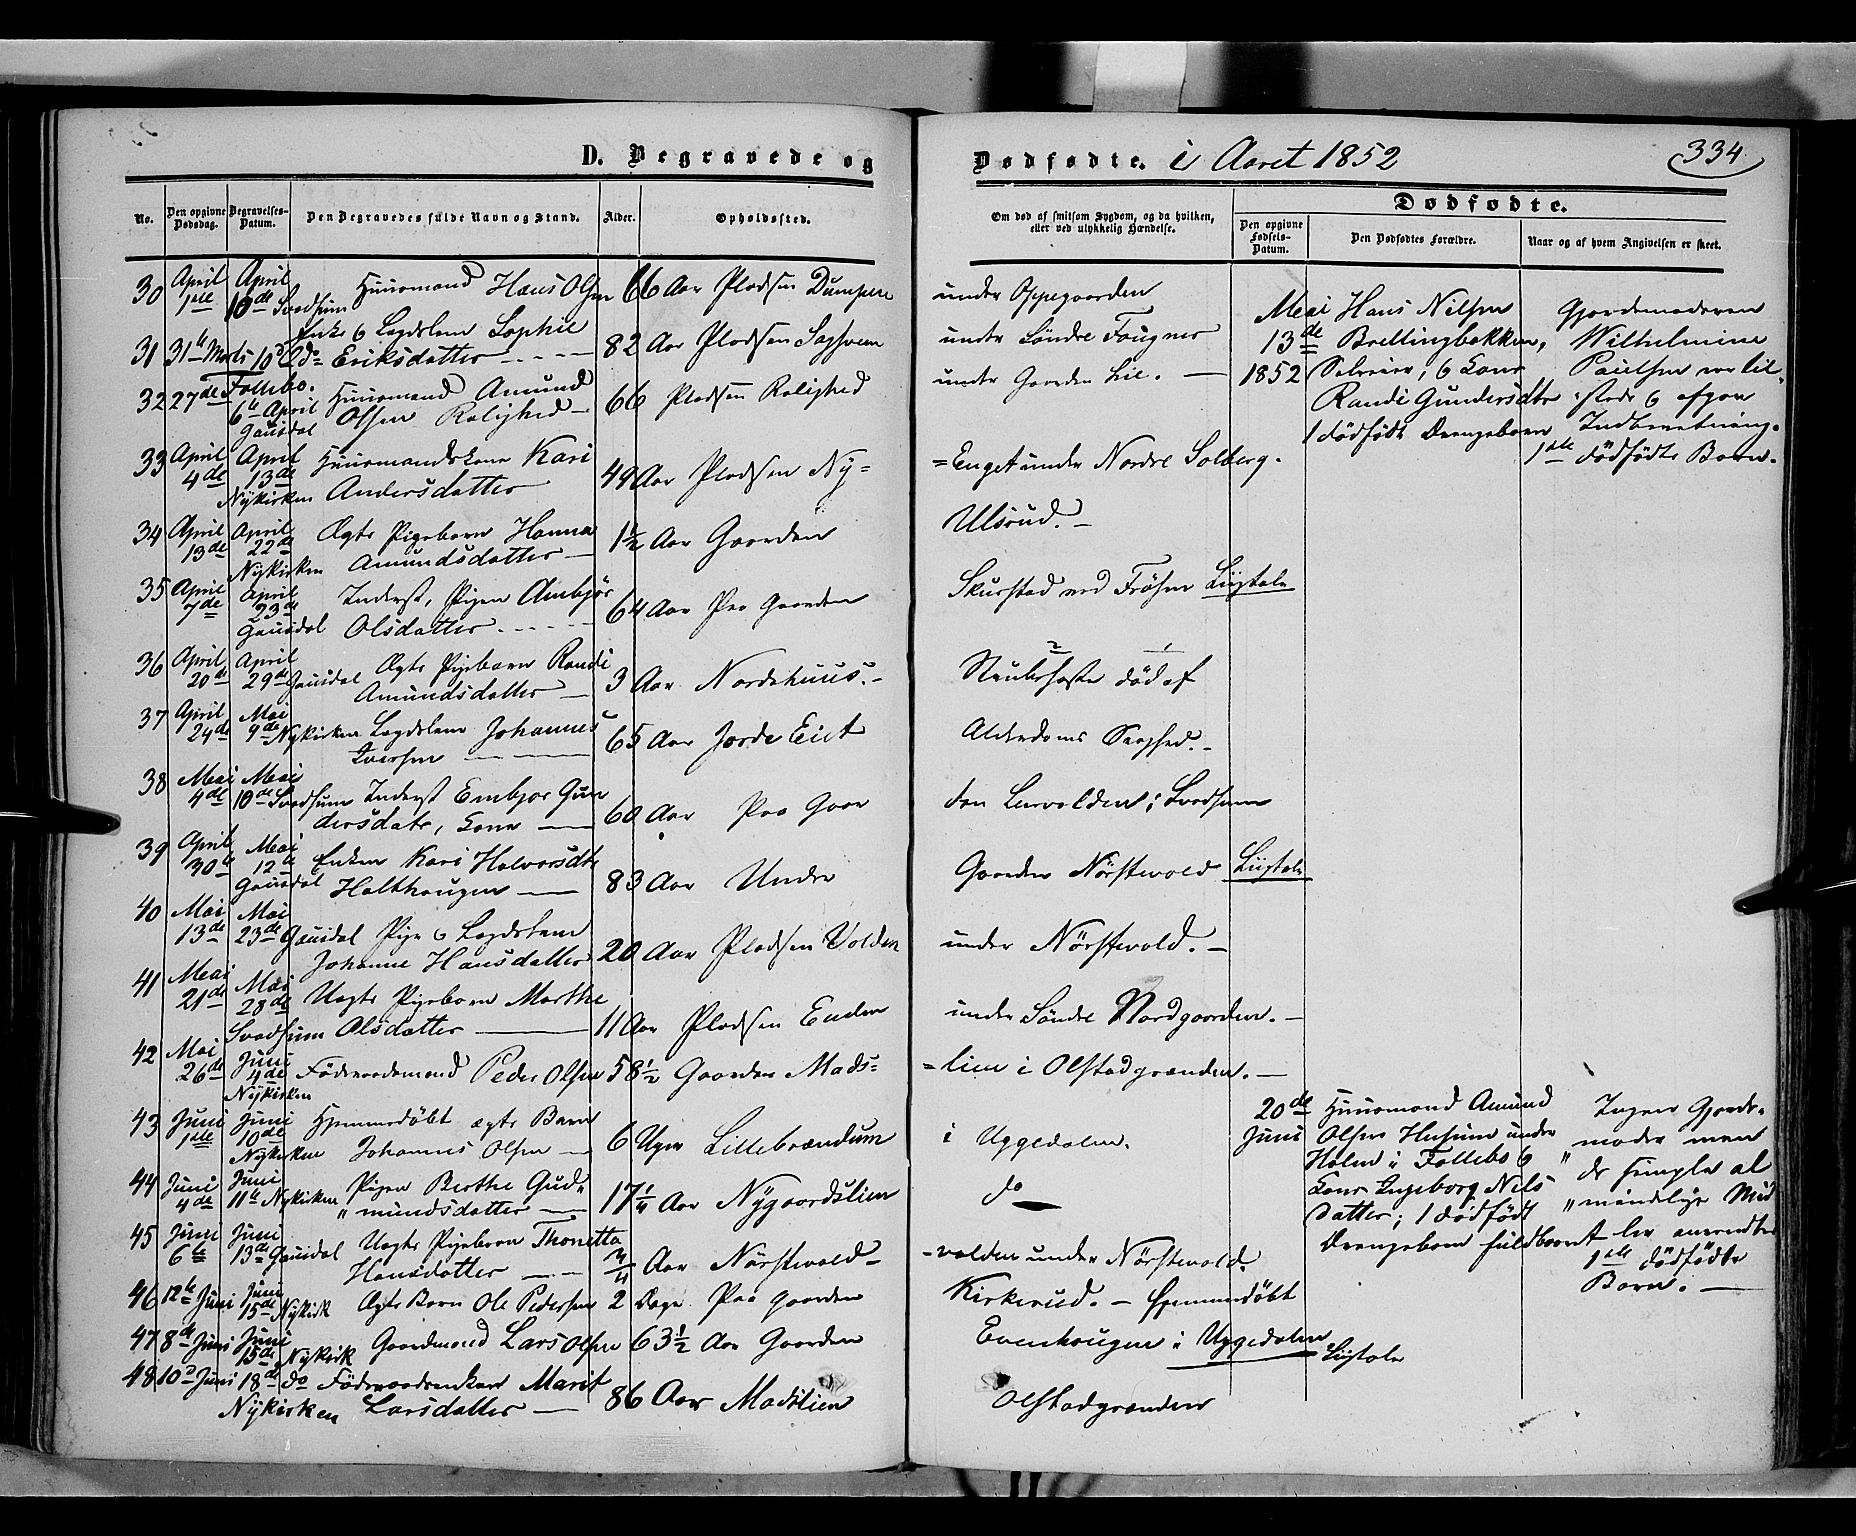 D. Begravede og
Dødfødte. i Aaret 1852
334
No.
Den opgivne Dødsdag.
Begravelses-Datum.
Den Begravedes fulde Navn og Stand.
Alder.
Opholdssted.
Om død af smitsom Sygdom, og da hvilken, eller ved ulykkelig Hændelse.
Dødfødte.
Den opgivne Fødsels-Datum.
Den Dødfødtes Forældre.
Naar og af hvem Angivelsen er skeet.
30 April 1ste April 10de Svadsum Huusmand Hans Olsen 66 Aar Pladsen Dumpen under Oppegaarden
31 31te Marts 10d Do Enke & Lægdslem Sophie Eriksdatter 82 Aar Pladsen under Søndre Fougner
32 27de Follebo. 6te April Gausdal Huusmand Amund Olsen Rolighed 66 Pladsen Rolighed under Gaarden Lie.
33 April 4de April 13de Nykirken Huusmandskone Kari Andersdatter 49 Aar Pladsen Ny=
=Enget under Nordre Solberg.
34 April 13de April 22de Nykirken Ægte Pigebarn Hanna Amundsdatter 1½ Aar Gaarden Ulsrud.
35 April 7de April 23de Gausdal Inderst, Pigen Ambjør Olsdatter 64 Aar Paa Gaarden Skurstad ved Frøsen Liigtale
36 April 20de April 29de Gausdal Ægte Pigebarn Randi Amundsdatter 3 Aar Nordshuus. død af
37 April 24de Mai 9de Nykirken Lægdslem Johannes Iversen 65 Aar Jorde Eiet Alderdoms Svaghed.
38 Mai 4de Mai 10de Svadsum Inderst Embjør Gundersdatr, Kone 60 Aar Paa Gaar
den Lervolden i Svadsum
39 April 30te Mai 12te Gausdal Enken Kari Halvorsdtr Holthaugen 83 Aar Under Gaarden Nørstevold Liigtale
40 Mai 13de Mai 23de Gausdal Pige & Lægdslem Johanne Hansdatter 20 Aar Pladsen Volden under Nørstevold.
41 Mai 21de Mai 28de Svadsum Uægte Pigebarn Marthe Olsdatter 11 Aar Pladsen Enden under Søndre Nordgaarden.
42 Mai 26de Juni 4de Nykirken Føderaadsmand Peder Olsen 58½ Gaarden Mads=
=lien i Olstadgrænden.
43 Juni 1ste Juni 10de Nykirken Hjemmedøbt ægte Barn Johannes Olsen 6 Uger Lillebrændum i Uggedalen.
44 Juni 4de Juni 11te Nykirken Pigen Berthe Gud„
„mundsdatter 17¼ Aar Nygaardslien do
45 Juni 6te Juni 13de Gausdal Uægte Pigebarn Thonetta Hansdatter ¾ Aar Nørstevold-
-volden under Nørstevold.
46 12te Juni Juni 15de Nykirk Ægte Barn Ole Pedersen 2 Dage Paa Gaarden Kirkerud. - Hjemmedøbt
47 8de Juni Juni 15de Nykirk Gaardmand Lars Olsen 63½ Aar Gaarden Evenhaugen i Uggedalen Liigtale
48 10d Juni 18de do Nykirken Føderaadsenken Marit Larsdatter 86 Aar Madslien Olstadgrænden
Mai 13de 1852
Hans Nilsen
Brettingbakken,
Selveier, & Kone
Randi Gundersdtr
1 dødfødt Drengebarn
Gjordemoderen
Wilhelmine
Paulsen var til„
„stede & afgav
Indberetning.
1ste dødfødte Barn.
20de Juni
Huusmand Amund
Olsen Husum under
Holen i Follebo &
Kone Ingeborg Nils
datter; 1 dødfødt
Drengebarn fuldbaaret
Ingen Gjorde„
„moder men
de simple al
„mindelige Mid
ler anvendte
1ste dødfødte
Barn.